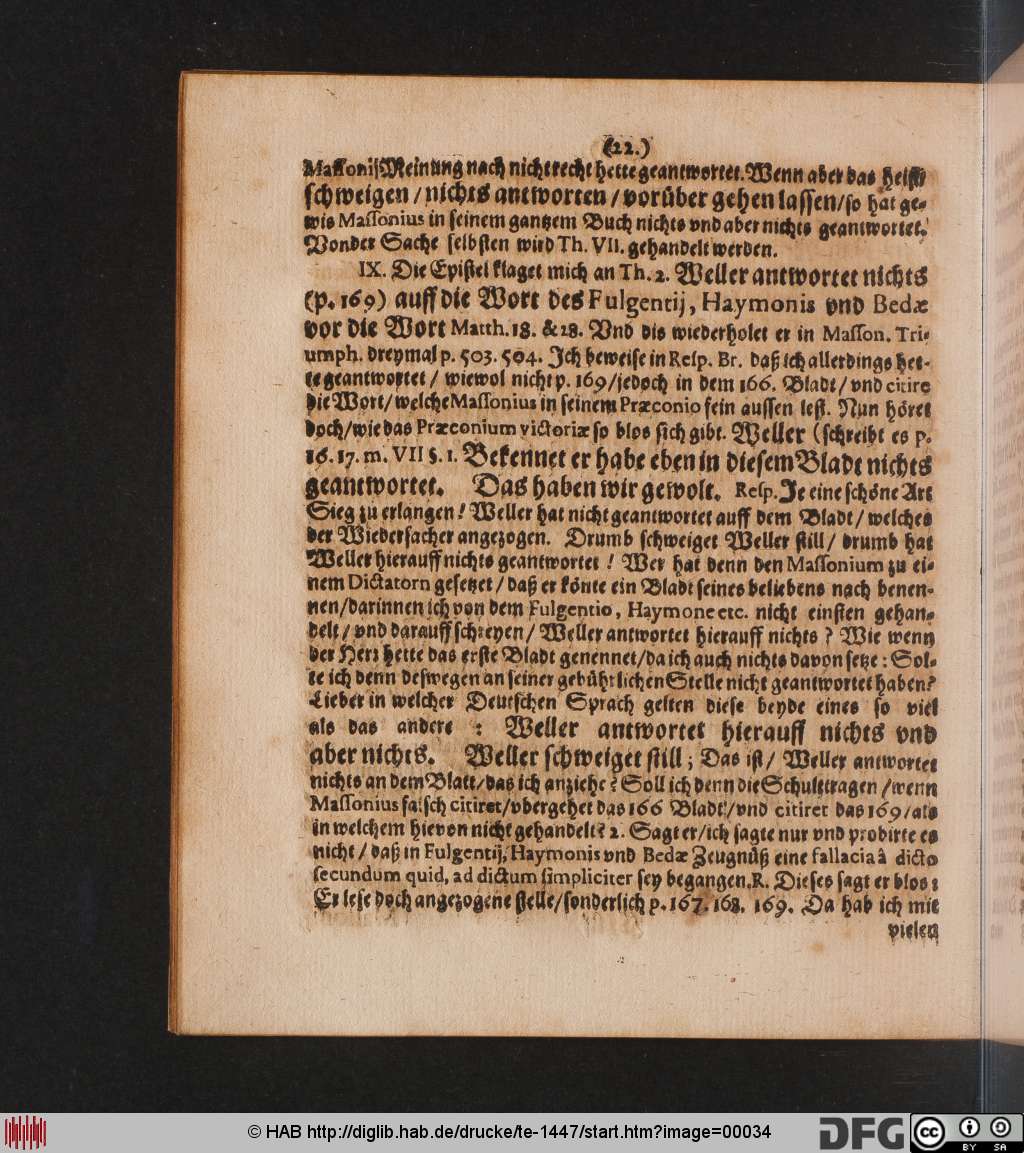 (22.)
Massonij Meinung nach nicht recht hette geantwortet. Wenn aber das heist
schweigen / nichts antworten / vorüber gehen lassen / so hat ge-
wis Massonius in seinem gantzem Buch nichts vnd aber nichts geantwortet.
Von der Sache selbsten wird Th. VII. gehandelt werden.
IX. Die Epistel klaget mich an Th. 2. Weller antwortet nichts
(p. 169) auff die Wort des Fulgentij, Haymonis vnd Bedæ
vor die Wort Matth. 18. & 28. Vnd dis wiederholet er in Masson. Tri-
umph. dreymal p. 503. 504. Ich beweise in Resp. Br. daß ich allerdings het-
te geantwortet / wiewol nicht p. 169 / jedoch in dem 166. Bladt / vnd citire
die Wort / welche Massonius in seinem Præconio fein aussen lest. Nun höret
doch / wie das Præconium victoriæ so blos sich gibt. Weller (schreibt es p.
16. 17. m. VII §. 1. Bekennet er habe eben in diesem Bladt nichts
geantwortet. Das haben wir gewolt. Resp. Je eine schöne Art
Sieg zu erlangen! Weller hat nicht geantwortet auff dem Bladt / welches
der Wiedersacher angezogen. Drumb schweiget Weller still / drumb hat
Weller hierauff nichts geantwortet! Wer hat denn den Massonium zu ei-
nem Dictatorn gesetzet / daß er könte ein Bladt seines beliebens nach benen-
nen / darinnen ich von dem Fulgentio, Haymone etc. nicht einsten gehan-
delt / vnd darauff schreyen / Weller antwortet hierauff nichts? Wie wenn
der Herr hette das erste Bladt genennet / da ich auch nichts davon setze: Sol-
te ich denn deswegen an seiner gebührlichen Stelle nicht geantwortet haben?
Lieber in welcher Deutschen Sprach gelten diese beyde eines so viel
als das andere : Weller antwortet hierauff nichts vnd
aber nichts. Weller schweiget still; Das ist / Weller antwortet
nichts an dem Blatt / das ich anziehe? Soll ich denn die Schult tragen / wenn
Massonius falsch citiret / vbergehet das 166 Bladt / vnd citiret das 169 / als
in welchem hievon nicht gehandelt? 2. Sagt er / ich sagte nur vnd probirte es
nicht / daß in Fulgentij, Haymonis vnd Bedæ Zeugnüß eine fallacia â dicto
secundum quid, ad dictum simpliciter sey begangen. R. Dieses sagt er blos:
Er lese doch angezogene stelle / sonderlich p. 167. 168. 169. Da hab ich mit
vielen
© HAB http://diglib.hab.de/drucke/te-1447/start.htm?image=00034
DFG
cc BY SA